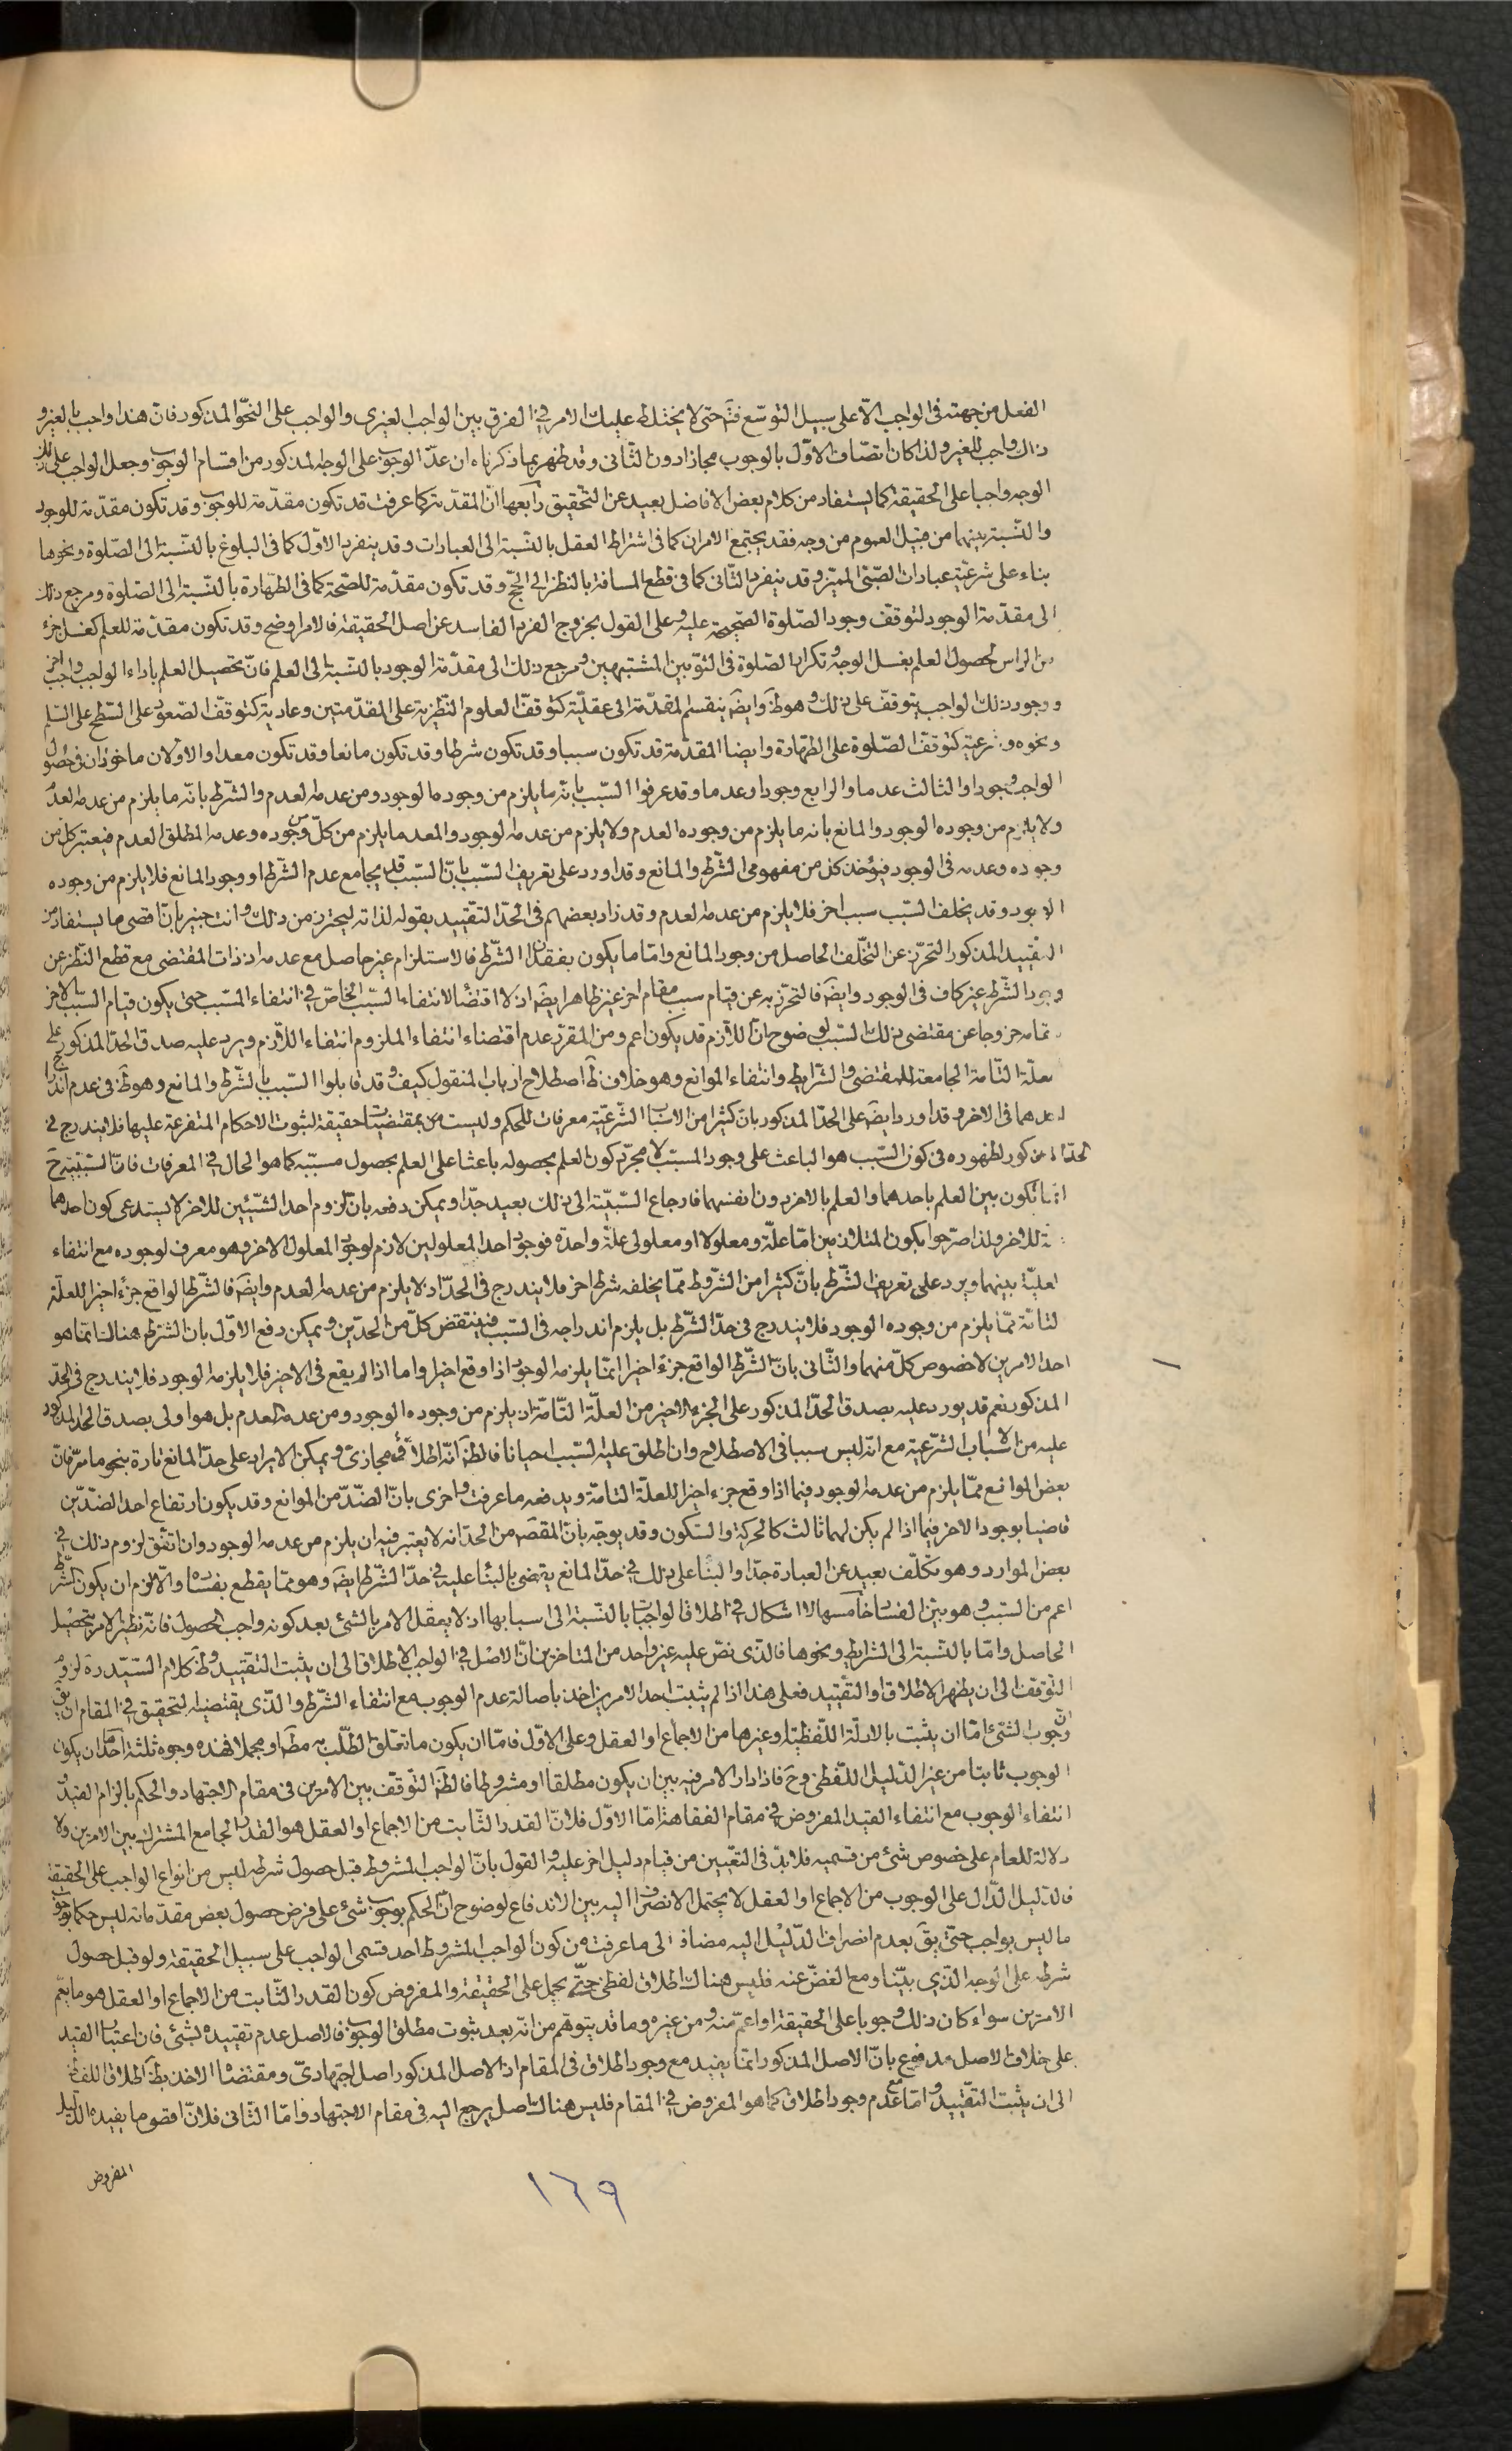 الفعل من جهته فى الواجب الا على سبيل التوسّع فتم حتى لا يختلط عليك الامر في الفرق بين الواجب الغيرى والواجب على النحو المذكور فان هذا واجب بالغير و
ذاك واجب للغير ولذا كان اتصاف الاوّل بالوجوب مجازا دون الثانى وقد ظهر بما ذكرناه ان عدّ الوجوب على الوجه المذكور من اقسام الوجوب وجعل الواجب على ذلك
الوجه واجبا على الحقيقة كما يستفاد من كلام بعض الافاضل بعيد عن التحقيق رابعها انّ المقدّمة كما عرفت قد تكون مقدّمة للوجوب وقد تكون مقدّمة للوجود
والنّسبة بينهما من قبيل العموم من وجه فقد يجتمع الامران كما فى اشتراط العقل بالنّسبة الى العبادات وقد ينفرد الاوّل كما فى البلوغ بالنّسبة الى الصّلوة ونحوها
بناء على شرعيّة عبادات الصّبىّ المميّز وقد ينفرد الثّانى كما فى قطع المسافة بالنظر الى الحجّ وقد تكون مقدّمة للصّحة كما فى الطّهارة بالنّسبة الى الصّلوة ومرجع ذلك
الى مقدّمة الوجود لتوقّف وجود الصّلوة الصّحيحة عليه وعلى القول بخروج الفرد الفاسد عن اصل الحقيقة فالامر اوضح وقد تكون مقدّمة للعلم كغسل جزء
من الراس لحصول العلم بغسل الوجه وتكرار الصّلوة فى الثوبين المشتبهين ومرجع ذلك الى مقدّمة الوجود بالنّسبة الى العلم فانّ تحصيل العلم باداء الواجب واجب اخر
ووجود ذلك الواجب يتوقّف على ذلك وهو ظ وايضَ ينقسم المقدّمة الى عقليّة كتوقّف العلوم النّظريّة على المقدّمتين وعادية كتوقّف الصّعود على السّطح على السّلم
ونحوه وشرعيّة كتوقّف الصّلوة على الطّهارة وايضا المقدّمة قد تكون سببا وقد تكون شرطا وقد تكون مانعا وقد تكون معدا والاولان ماخوذان فى حصول
الواجب وجودا والثالث عدما والرابع وجودا وعدما وقد عرفوا السّبب بانّه ما يلزم من وجوده الوجود ومن عدمه العدم والشّرط بانّه ما يلزم من عدمه العدم
ولا يلزم من وجوده الوجود والمانع بانه ما يلزم من وجوده العدم ولا يلزم من عدمه الوجود والمعد ما يلزم من كلّ من وجوده وعدمه المطلق العدم فيعتبر كلّ من
وجوده وعدمه فى الوجود فيؤخذ كل من مفهومى الشّرط والمانع وقد اورد على تعريف السّبب بانّ السّبب قد يجامع عدم الشّرط او وجود المانع فلا يلزم من وجوده
الوجود وقد يخلف السّبب سبب اخر فلا يلزم من عدمه العدم وقد زاد بعضهم فى الحدّ التقييد بقوله لذاته ليحترز من ذلك وانت خبير بانّ اقصى ما يستفاد من
التقييد المذكور التحرّز عن التخلّف الحاصل من وجود المانع وامّا ما يكون بفقدان الشّرط فالاستلزام غير حاصل مع عدمه اذ ذات المقتضى مع قطع النّظر عن
وجود الشّرط غير كاف فى الوجود وايضَ فالتحرّز به عن قيام سبب مقام اخر غير ظاهر ايضَ اذ لا اقتضاء لانتفاء السّبب الخاصّ في انتفاء المسّبب حتى يكون قيام السّبب الاخر
مقامه خروجا عن مقتضى ذلك السّبب لوضوح انّ اللازم قد يكون اعم ومن المقرّر عدم اقتضاء انتفاء الملزوم انتفاء اللّازم ويرد عليه صدق الحدّ المذكور على
العلّة التّامة الجامعة للمقتضى والشّرايط وانتفاء الموانع وهو خلاف ظَ اصطلاح ارباب المنقول كيف وقد قابلوا السّبب بالشّرط والمانع وهو ظَ فى عدم اندراج
احدهما فى الاخر وقد اورد ايضَ على الحدّ المذكور بان كثيرا من الاسباب الشّرعيّة معرفات للحكم وليست من مقتضيات حقيقة لثبوت الاحكام المتفرعة عليها فلا يندرج فى
الحدّ المذكور لظهوره فى كون السّبب هو الباعث على وجود المسبّب لا مجرّد كون العلم بحصوله باعثا على العلم بحصول مسبّبه كما هو الحال في المعرفات فانّ السّببيّة حَ
انّما تكون بين العلم باحدهما والعلم بالاخر دون انفسهما فارجاع السّببيّة الى ذلك بعيد جدّا ويمكن دفعه بانّ لزوم احد الشّيئين للاخر لا يستدعى كون احدهما
علة للاخر ولذا صرّحوا بكون المتلازمين امّا علّة ومعلولا او معلولى علّة واحدة فوجود احد المعلولين لازم لوجود المعلول الاخر وهو معرف لوجوده مع انتفاء
العليّة بينهما ويرد على تعريف الشّرط بانّ كثيرا من الشّروط ممّا يخلفه شرط اخر فلا يندرج فى الحدّ اذ لا يلزم من عدمه العدم وايضَ فالشّرط الواقع جزءً اخيرا للعلّة
التامّة ممّا يلزم من وجوده الوجود فلا يندرج فى حدّ الشّرط بل يلزم اندراجه فى السّبب فينتقض كلّ من الحدّين ويمكن دفع الاوّل بان الشّرط هنالك انما هو
احد الامرين لا خصوص كلّ منهما والثّانى بانّ الشّرط الواقع جزءً اخيرا انّما يلزمه الوجود اذا وقع اخيرا واما اذا لم يقع فى الاخير فلا يلزمه الوجود فلا يندرج فى الحدّ
المذكور نعم قد يورد عليه بصدق الحدّ المذكور على الجزء الاخير من العلّة التّامّة اذ يلزم من وجوده الوجود ومن عدمه العدم بل هو اولى بصدق الحدّ المذكور
عليه من الاسباب الشّرعيّة مع انّه ليس سببا فى الاصطلاح وان اطلق عليه السّبب احيانا فالظَ انّه اطلاق مجازى ويمكن الايراد على حدّ المانع تارة بنحو ما مرّ فانّ
بعض الموانع ممّا يلزم من عدمه الوجود فيما اذا وقع جزء اخيرا للعلّة التامّة ويدفعه ما عرفت واخرى بانّ الضدّ من الموانع وقد يكون ارتفاع احد الضدّين
قاضيا بوجود الاخر فيما اذا لم يكن لهما ثالث كالحركة والسّكون وقد يوجّه بانّ المقصَ من الحدّ انه لا يعتبر فيه ان يلزم من عدمه الوجود وان اتّفق لزوم ذلك في
بعض الموارد وهو تكلّف بعيد عن العبارة جدّا والبناء على ذلك في حدّ المانع يقضى بالبناء عليه في حدّ الشّرط ايضَ وهو ممّا يقطع بفساده والّا لزم ان يكون الشّرط
اعم من السّبب وهو بيّن الفساد خامسها لا اشكال في اطلاق الواجبات بالنّسبة الى اسبابها اذ لا يعقل الامر بالشئ بعد كونه واجب الحصول فانّه نظير الامر بتحصيل
الحاصل وامّا بالنّسبة الى الشرايط ونحوها فالّذى نصّ عليه غير واحد من المتاخرين انّ الاصل في الواجب الاطلاق الى ان يثبت التقييد وظَ كلام السّيّد ره لزوم
التّوقف الى ان يظهر الاطلاق او التّقييد فعلى هذا اذا لم يثبت احد الامرين اخذ باصالة عدم الوجوب مع انتفاء الشّرط والّذى يقتضيه التحقيق في المقام ان يقَ
انّ وجوب الشئ امّا ان يثبت بالادلّة اللّفظيّة او غيرها من الاجماع او العقل وعلى الاوّل فامّا ان يكون ما تعلّق الطّلب به مطَ او مجملا فهذه وجوه ثلثة احدها ان يكون
الوجوب ثابتا من غير الدّليل اللّفظى وحَ فاذا دار الامر فيه بين ان يكون مطلقا او مشروطا فالظَ التّوقّف بين الامرين فى مقام الاجتهاد والحكم بالزام القيد و
انتفاء الوجوب مع انتفاء القيد المفروض في مقام الفقاهة امّا الاوّل فلانّ القدر الثّابت من الاجماع او العقل هو القدر الجامع المشترك بين الامرين ولا
دلالة للعام على خصوص شئ من قسميه فلا بدّ فى التّعيين من قيام دليل اخر عليه والقول بانّ الواجب المشروط قبل حصول شرطه ليس من انواع الواجب على الحقيقة
فالدّليل الدّال على الوجوب من الاجماع او العقل لا يحتمل الانصراف اليه بين الاندفاع لوضوح انّ الحكم بوجوب شئ على فرض حصول بعض مقدّماته ليس حكما بوجوب
ما ليس بواجب حتّى يقَ بعدم انصراف الدّليل اليه مضافا الى ما عرفت من كون الواجب المشروط احد قسمى الواجب على سبيل الحقيقة ولو قبل حصول
شرطه على الوجه الّذى بيّنا ومع الغضّ عنه فليس هناك اطلاق لفظى حتّى يحمل على الحقيقة والمفروض كون القدر الثّابت من الاجماع او العقل هو ما يعمّ
الامرين سواء كان ذلك وجوبا على الحقيقة او اعمّ منه ومن غيره وما قد يتوهّم من انّه بعد ثبوت مطلق الوجوب فالاصل عدم تقييده بشئ فان اعتبار القيد
على خلاف الاصل مدفوع بانّ الاصل المذكور انّما يفيد مع وجود اطلاق فى المقام اذ الاصل المذكور اصل اجتهادىّ ومقتضاه الاخذ بظَ اطلاق اللّفظ
الى ان يثبت التّقييد وامّا مع عدم وجود اطلاق كما هو المفروض في المقام فليس هناك اصل يرجع اليه فى مقام الاجتهاد وامّا الثّانى فلانّ اقصى ما يفيده الدّليل
المفروض
١٦٩